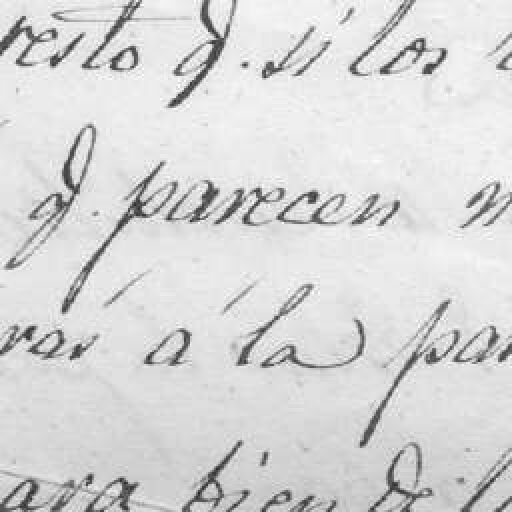 resto q. si los
q. parecen
ras á la par
ara bien de la